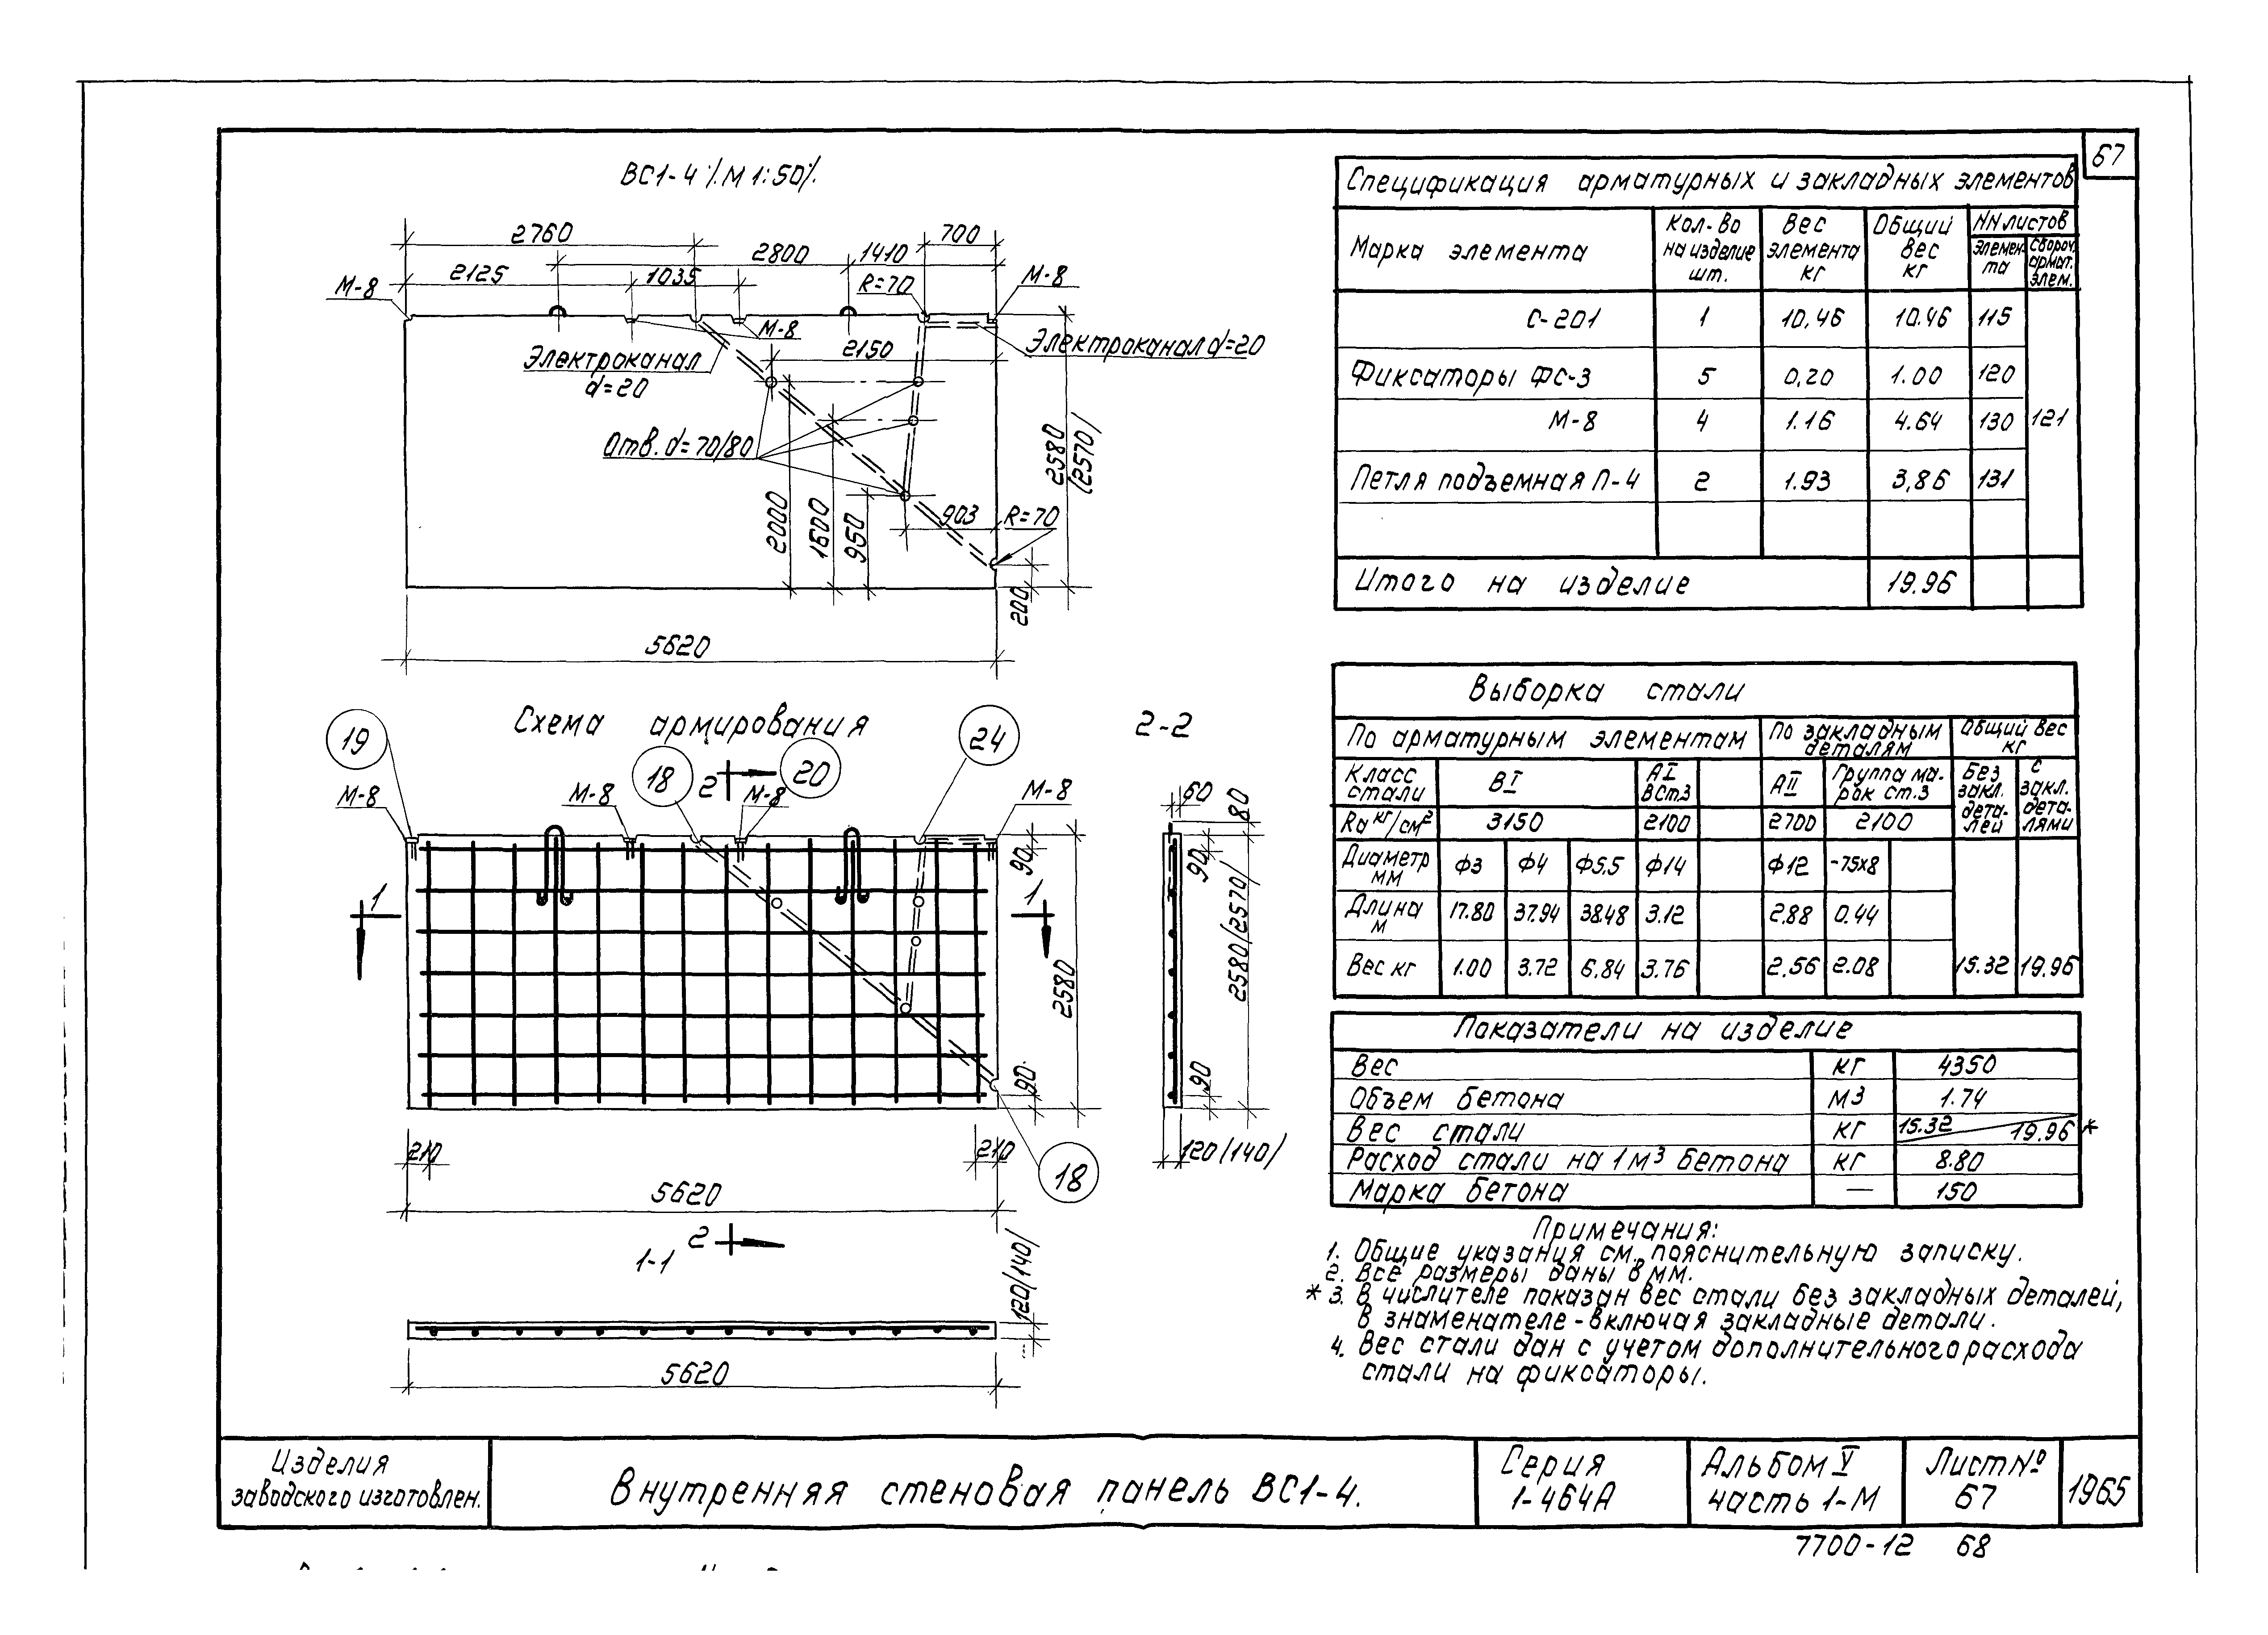 67
ВС1-4 /М 1:50/
2760
700
2800
1410
2125
1035
М-8
R=70
М-8
М-8
Электроканал
d=20
2150
Электроканал d=20
Отв. d=70/80
2000
1600
950
903
R=70
200
2580
/2570/
5620
Схема армирования
19
18
2
20
24
М-8
М-8
М-8
М-8
90
1
1
2580
90
210
210
18
5620
2
2-2
60
80
90
2580/2570/
90
120/140/
1-1
120/140/
5620
Спецификация арматурных и закладных элементов
Марка элемента
Кол-во на изделие шт.
Вес элемента кг
Общий вес кг
NN листов
Элемен-та
Сбороч. армат. элем.
С-201 1 10,46 10.46 115
Фиксаторы ФС-3 5 0,20 1.00 120
М-8 4 1.16 4.64 130 121
Петля подъемная П-4 2 1.93 3,86 131
Итого на изделие 19.96
Выборка стали
По арматурным элементам
По закладным деталям
Общий вес кг
Класс стали ВI АI ВСт.3 АII Группа ма-рок ст.3
Без закл. дета-лей
С закл. дета-лями
Ra кг/см² 3150 2100 2700 2100
Диаметр мм Ф3 Ф4 Ф5,5 Ф14 Ф12 -75х8
Длина м 17.80 37.94 38.48 3.12 2.88 0.44
Вес кг 1.00 3.72 6.84 3.76 2.56 2.08 15.32 19.96
Показатели на изделие
Вес кг 4350
Объем бетона м3 1.74
Вес стали кг 15.32 19.96 *
Расход стали на 1м³ бетона кг 8.80
Марка бетона — 150
Примечания:
1. Общие указания см. пояснительную записку.
2. Все размеры даны в мм.
* 3. В числителе показан вес стали без закладных деталей,
в знаменателе - включая закладные детали.
4. Вес стали дан с учетом дополнительного расхода
стали на фиксаторы.
Изделия
заводского изготовлен.
Внутренняя стеновая панель ВС1-4.
Серия
1-464А
Альбом V
часть 1-М
Лист №
67
1965
7700-12 68